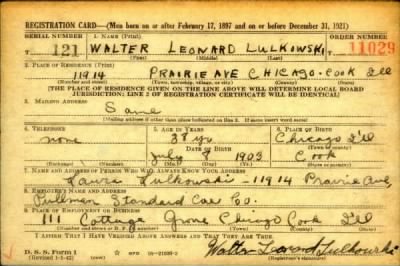 REGISTRATION CARD—(Men born on or after February 17, 1897 and on or before December 31, 1921)
SERIAL NUMBER 1. NAME (Print) ORDER NUMBER
T 121 WALTER LEONARD LULKOWSKI 11029
(First) (Middle) (Last)
2. PLACE OF RESIDENCE (Print)
11914 PRAIRIE AVE CHICAGO-COOK Ill
(Number and street) (Town, township, village, or city) (County) (State)
[THE PLACE OF RESIDENCE GIVEN ON THE LINE ABOVE WILL DETERMINE LOCAL BOARD
JURISDICTION; LINE 2 OF REGISTRATION CERTIFICATE WILL BE IDENTICAL]
3. MAILING ADDRESS
Same
[Mailing address if other than place indicated on line 2. If same insert word same]
4. TELEPHONE 5. AGE IN YEARS 6. PLACE OF BIRTH
none 38 yrs Chicago Ill
DATE OF BIRTH
July 1903 Cook
(Exchange) (Number) (Mo.) (Day) (Yr.)
7. NAME AND ADDRESS OF PERSON WHO WILL ALWAYS KNOW YOUR ADDRESS
Lulkowski - 11914 Prairie Ave,
8. EMPLOYER'S NAME AND ADDRESS
Pullman Standard Car Co.
9. PLACE OF EMPLOYMENT OR BUSINESS
111 Cottage Grove Chicago Cook Ill
(Number and street or R. F. D. number) (Town) (County) (State)
I AFFIRM THAT I HAVE VERIFIED ABOVE ANSWERS AND THAT THEY ARE TRUE.
D. S. S. Form 1
(Revised 1-1-42) Walter Leonard Lulkowski
(Registrant's signature)